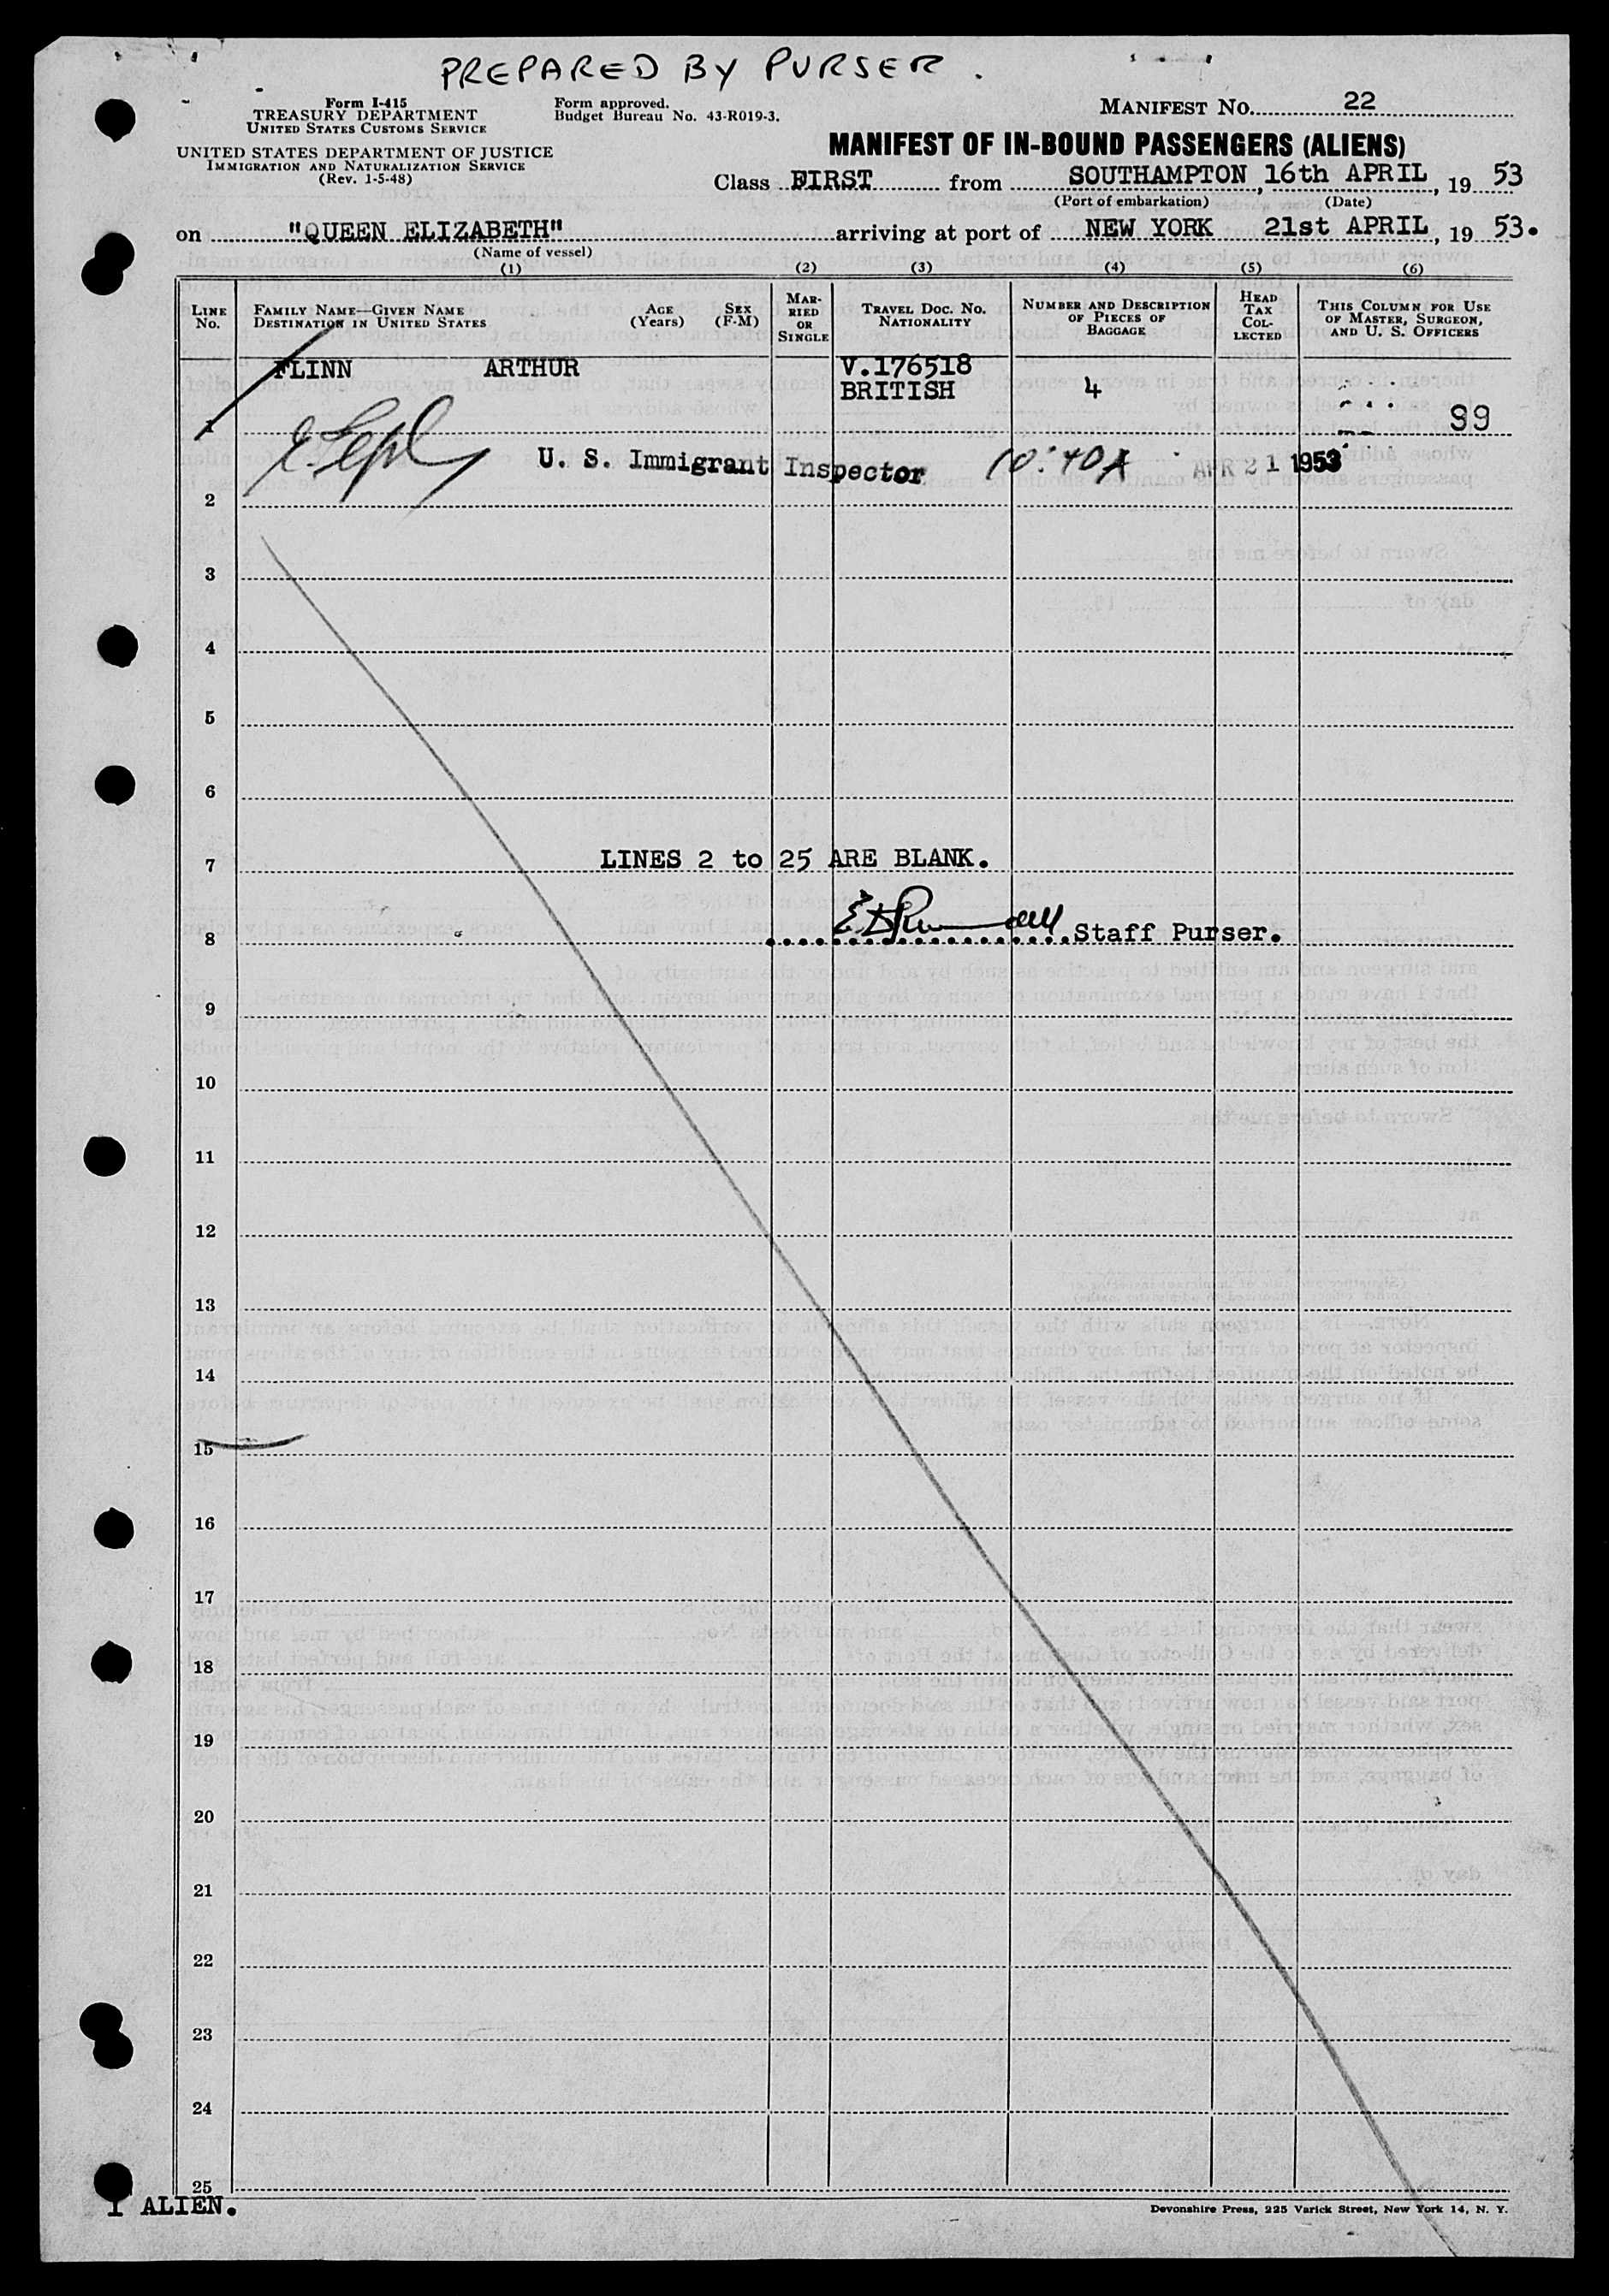 PREPARED BY PURSER.
Form I-415
TREASURY DEPARTMENT
UNITED STATES CUSTOMS SERVICE
UNITED STATES DEPARTMENT OF JUSTICE
IMMIGRATION AND NATURALIZATION SERVICE
(Rev. 1-5-48)
Form approved.
Budget Bureau No. 43-R019-3.
MANIFEST NO. 22
MANIFEST OF IN-BOUND PASSENGERS (ALIENS)
Class FIRST from SOUTHAMPTON, 16th APRIL, 19 53
(Port of embarkation) (Date)
on "QUEEN ELIZABETH" arriving at port of NEW YORK 21st APRIL, 19 53.
(Name of vessel)
(1) (2) (3) (4) (5) (6)
LINE No.
FAMILY NAME—GIVEN NAME
DESTINATION IN UNITED STATES
AGE (Years)
SEX (F-M)
MARRIED OR SINGLE
TRAVEL DOC. NO.
NATIONALITY
NUMBER AND DESCRIPTION OF PIECES OF BAGGAGE
HEAD TAX COLLECTED
THIS COLUMN FOR USE OF MASTER, SURGEON, AND U. S. OFFICERS
FLINN ARTHUR V.176518
BRITISH 4
1 99
U. S. Immigrant Inspector 10:40A APR 21 1953
2
3
4
5
6
7 LINES 2 to 25 ARE BLANK.
8 Staff Purser.
9
10
11
12
13
14
15
16
17
18
19
20
21
22
23
24
25
1 ALIEN.
Devonshire Press, 225 Varick Street, New York 14, N. Y.